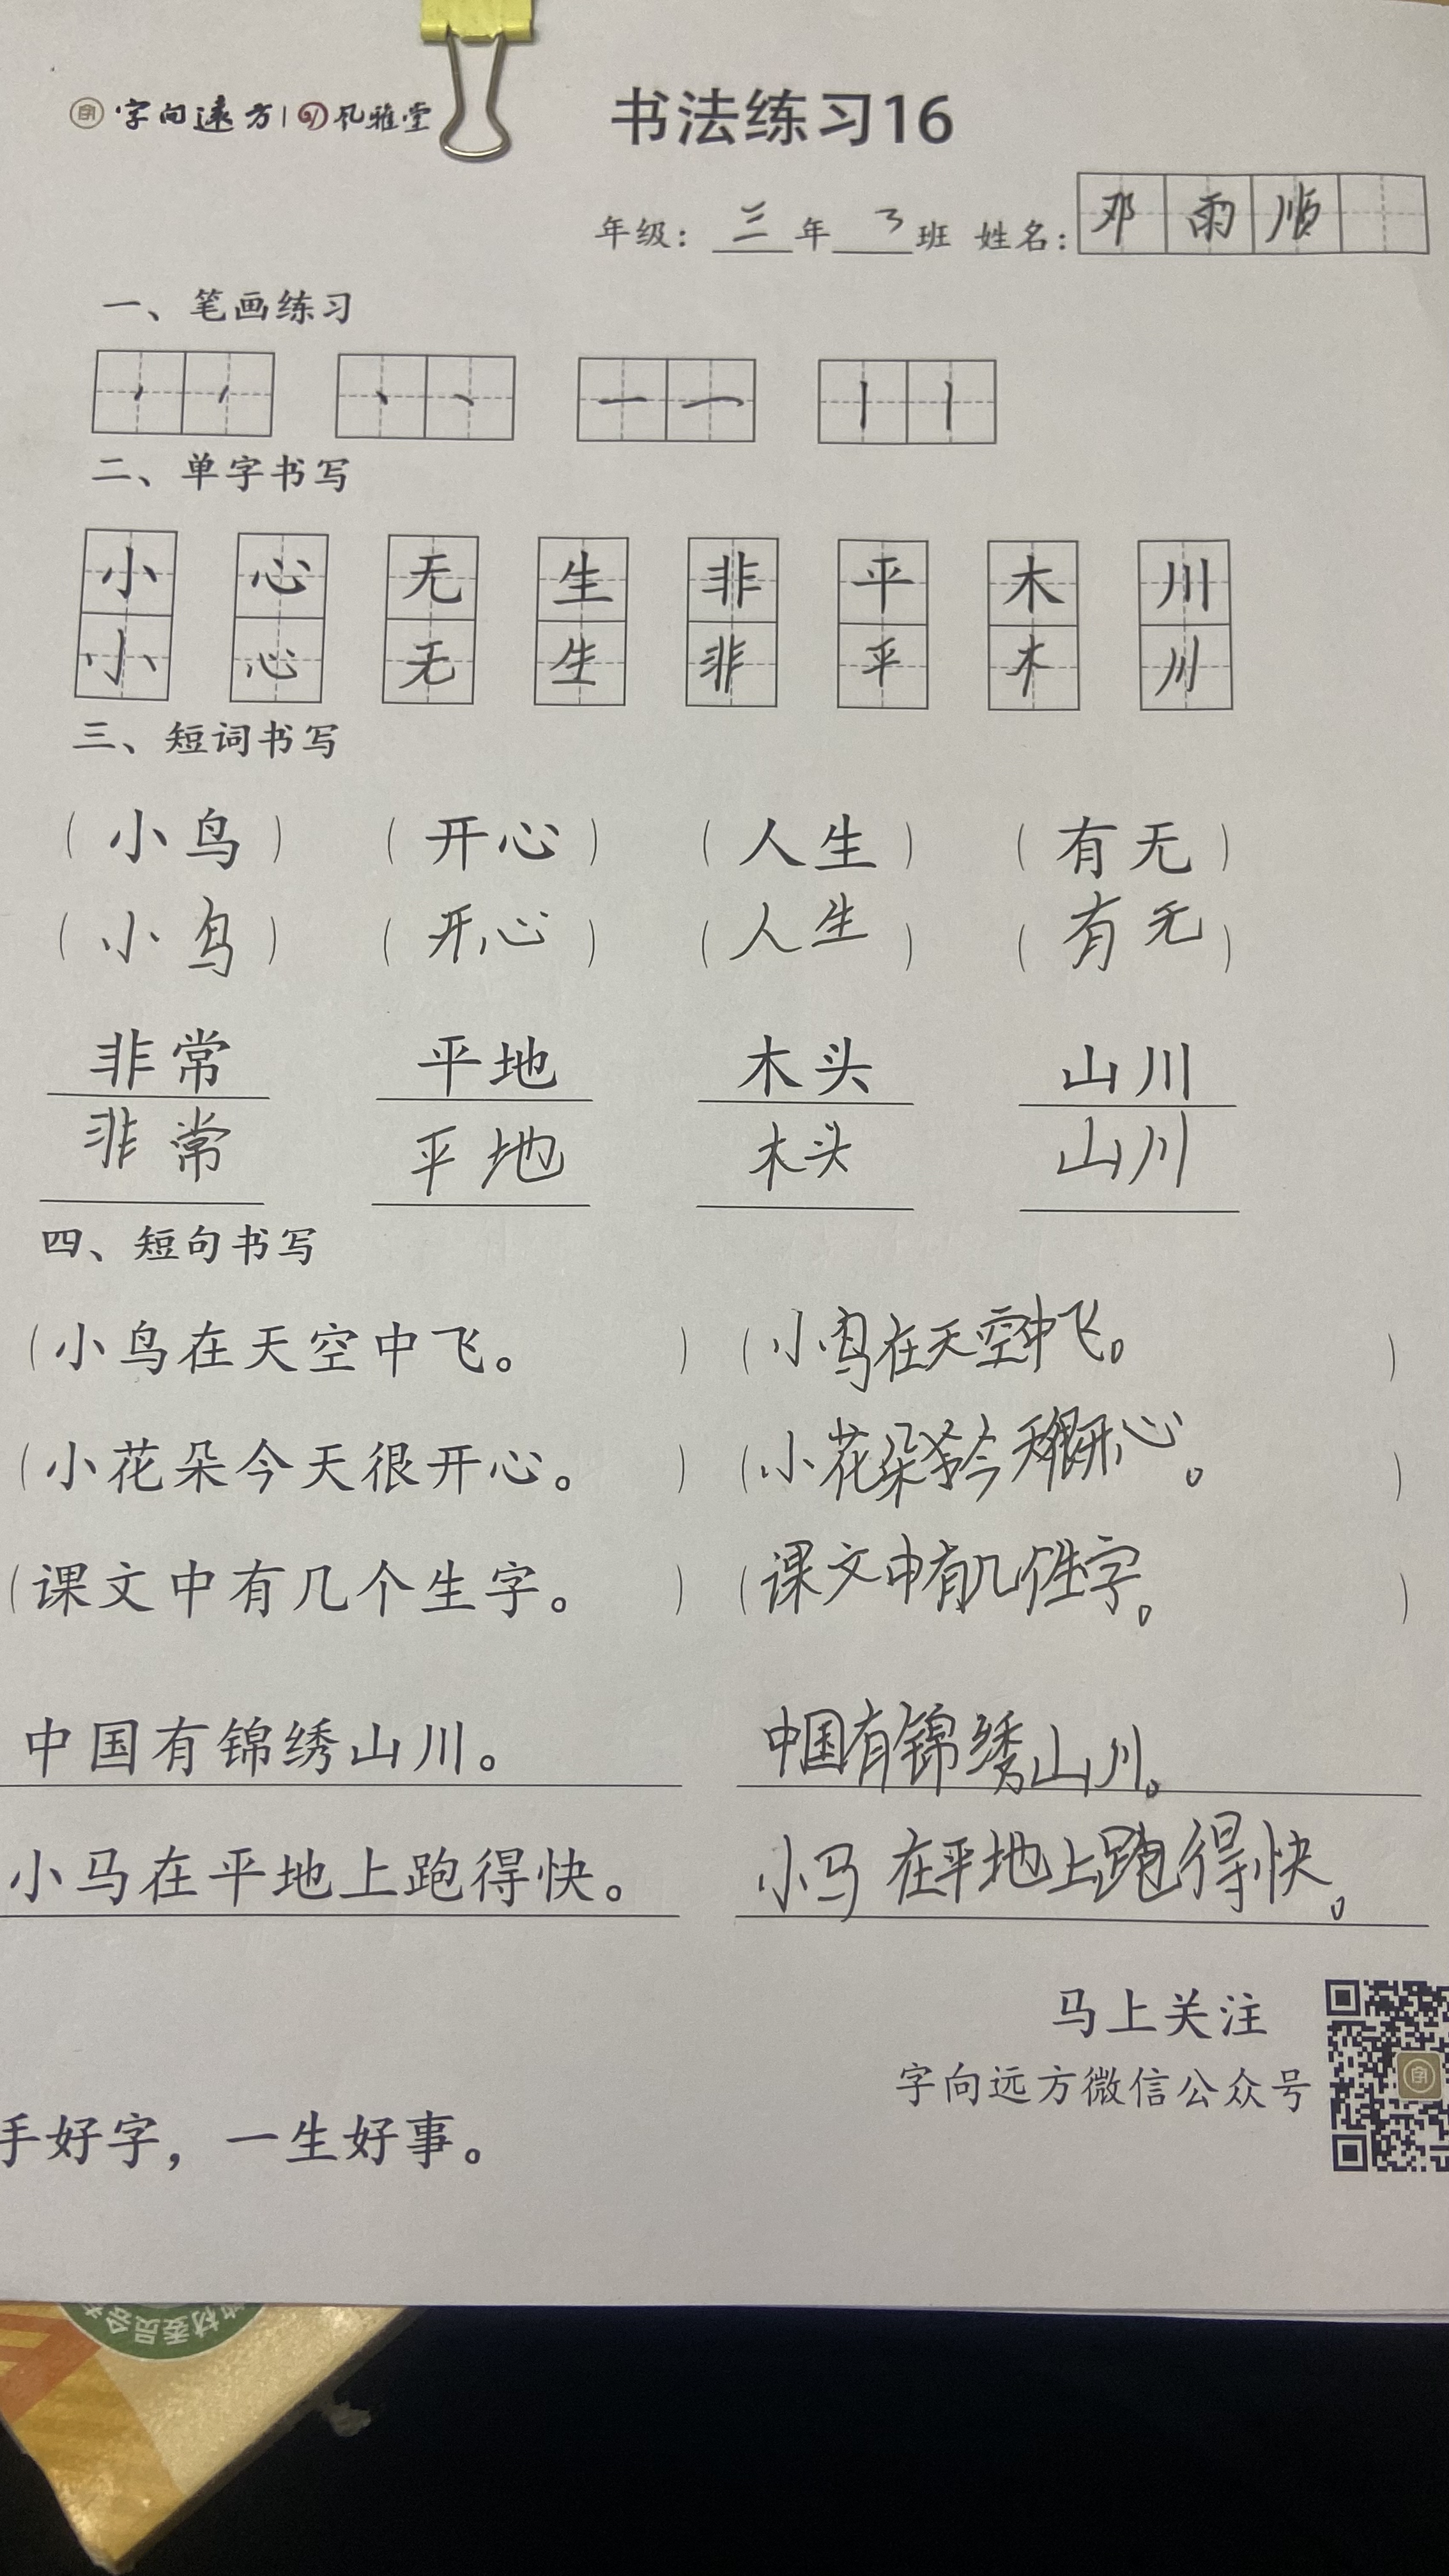 字向远方 | 风雅堂
书法练习16
年级：三年3班 姓名：邓雨顺
一、笔画练习
二、单字书写
小 心 无 生 非 平 木 川
小 心 无 生 非 平 木 川
三、短词书写
（小鸟）（开心）（人生）（有无）
（小鸟）（开心）（人生）（有无）
非常 平地 木头 山川
非常 平地 木头 山川
四、短句书写
（小鸟在天空中飞。）（小鸟在天空中飞。）
（小花朵今天很开心。）（小花朵今天很开心。）
（课文中有几个生字。）（课文中有几个生字。）
中国有锦绣山川。 中国有锦绣山川。
小马在平地上跑得快。 小马在平地上跑得快。
马上关注
字向远方微信公众号
手好字，一生好事。